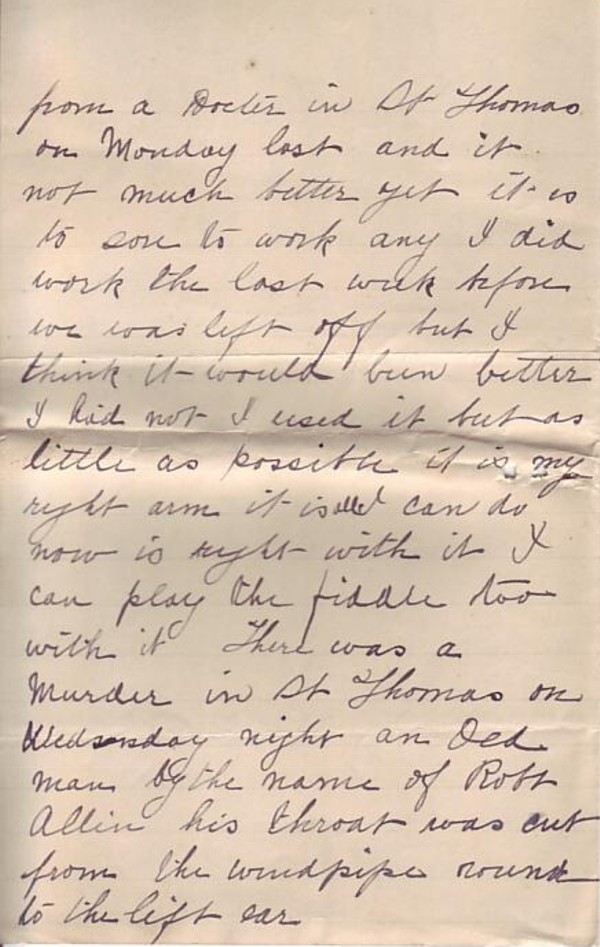 from a Docter in St Thomas
on Monday last and it
not much better yet it is
to sore to work any I did
work the last week before
we was left off but I
think it would been better
I had not I used it but as
little as possible it is my
right arm it is all I can do
now is right with it I
can play the fiddle too
with it There was a
Murder in St Thomas on
Wedsnsday night an Oed
man by the name of Robt
Allin his throat was cut
from the windpipe round
to the lift ear